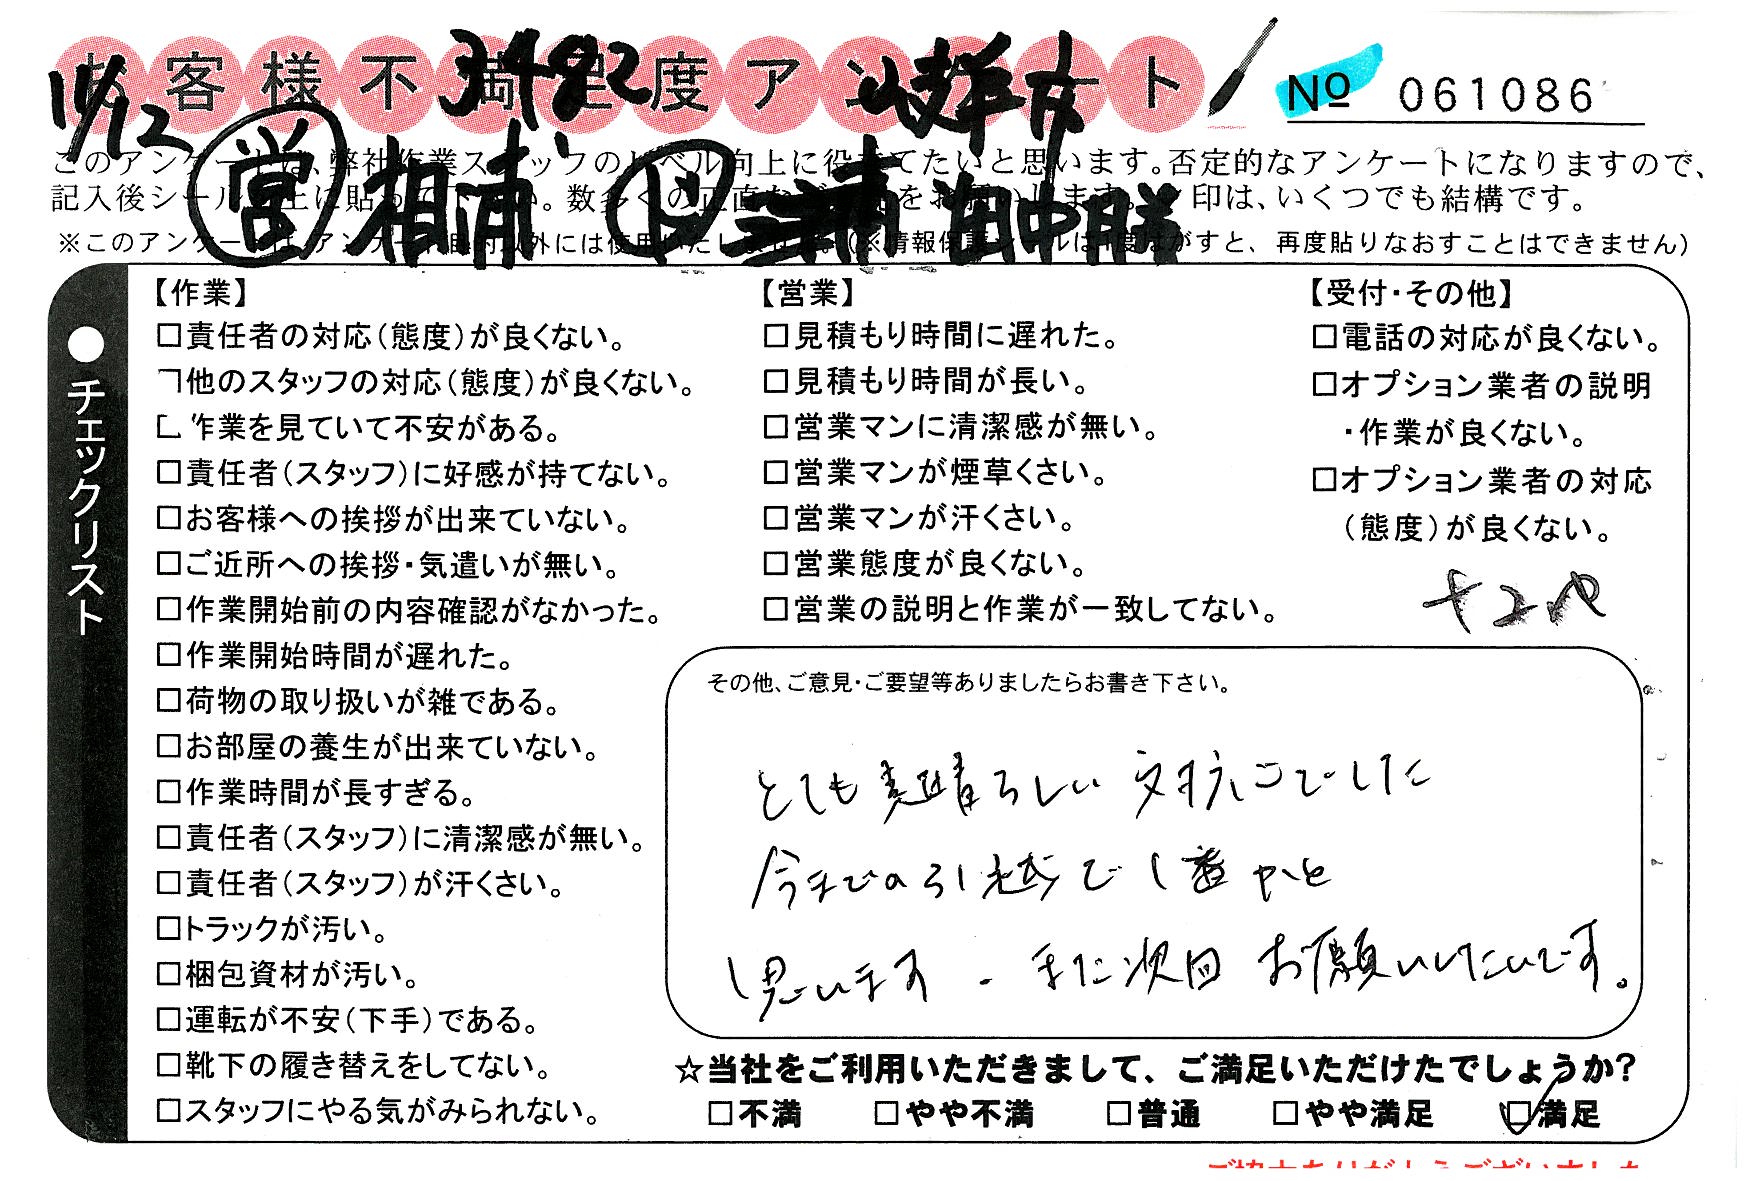 お客様不満足度アンケート
№ 061086
11/12
3482
岐阜市
営 相浦
このアンケートは、弊社作業スタッフのレベル向上に役立てたいと思います。否定的なアンケートになりますので、
記入後シールを上に貼って下さい。数多くの正直な
をお願いします。
印は、いくつでも結構です。
※このアンケートは、アンケート目的以外には使用いたしません。(※情報保護シールは1度はがすと、再度貼りなおすことはできません)
●チェックリスト
【作業】
□責任者の対応(態度)が良くない。
他のスタッフの対応(態度)が良くない。
作業を見ていて不安がある。
□責任者(スタッフ)に好感が持てない。
□お客様への挨拶が出来ていない。
□ご近所への挨拶・気遣いが無い。
□作業開始前の内容確認がなかった。
□作業開始時間が遅れた。
□荷物の取り扱いが雑である。
□お部屋の養生が出来ていない。
□作業時間が長すぎる。
□責任者(スタッフ)に清潔感が無い。
□責任者(スタッフ)が汗くさい。
□トラックが汚い。
□梱包資材が汚い。
□運転が不安(下手)である。
□靴下の履き替えをしてない。
□スタッフにやる気がみられない。
【営業】
□見積もり時間に遅れた。
□見積もり時間が長い。
□営業マンに清潔感が無い。
□営業マンが煙草くさい。
□営業マンが汗くさい。
□営業態度が良くない。
□営業の説明と作業が一致してない。
【受付・その他】
□電話の対応が良くない。
□オプション業者の説明
・作業が良くない。
□オプション業者の対応
(態度)が良くない。
その他、ご意見・ご要望等ありましたらお書き下さい。
とても素晴らしい対応でした
今までの引越で1番かと
思います。また次回お願いしたいです。
☆当社をご利用いただきまして、ご満足いただけたでしょうか?
□不満 □やや不満 □普通 □やや満足 ☑満足
ご協力ありがとうございました